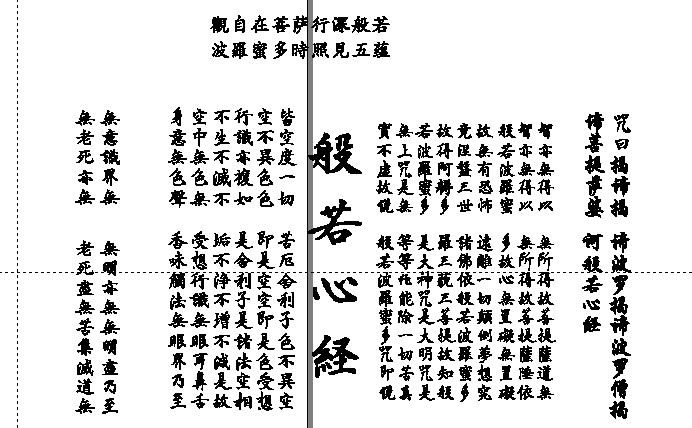 觀自在菩萨行深般若
波羅蜜多時照見五蘊
皆空度一切 苦厄舍利子色不異空
空不異色色 即是空空即是色受想
行識亦複如 是舍利子是諸法空相
不生不滅不 垢不淨不增不減是故
空中無色無 受想行識無眼耳鼻舌
身意無色聲 香味觸法無眼界乃至
無意識界無 無明亦無無明盡乃至
無老死亦無 老死盡無苦集滅道無
般若心経
智亦無得以 無所得故菩提薩道無
智亦無得以 無所得故菩提薩埵依
般若波羅蜜 多故心無罣礙無罣礙
故無有恐怖 遠離一切顛倒夢想究
竟涅盤三世 諸佛依般若波羅蜜多
故得阿耨多 羅三藐三菩提故知般
若波羅蜜多 是大神咒是大明咒是
無上咒是無 等等咒能除一切苦真
實不虛故說 般若波羅蜜多咒即說
咒曰揭谛揭 谛波罗揭谛波罗僧揭
谛菩提萨婆 诃般若心経